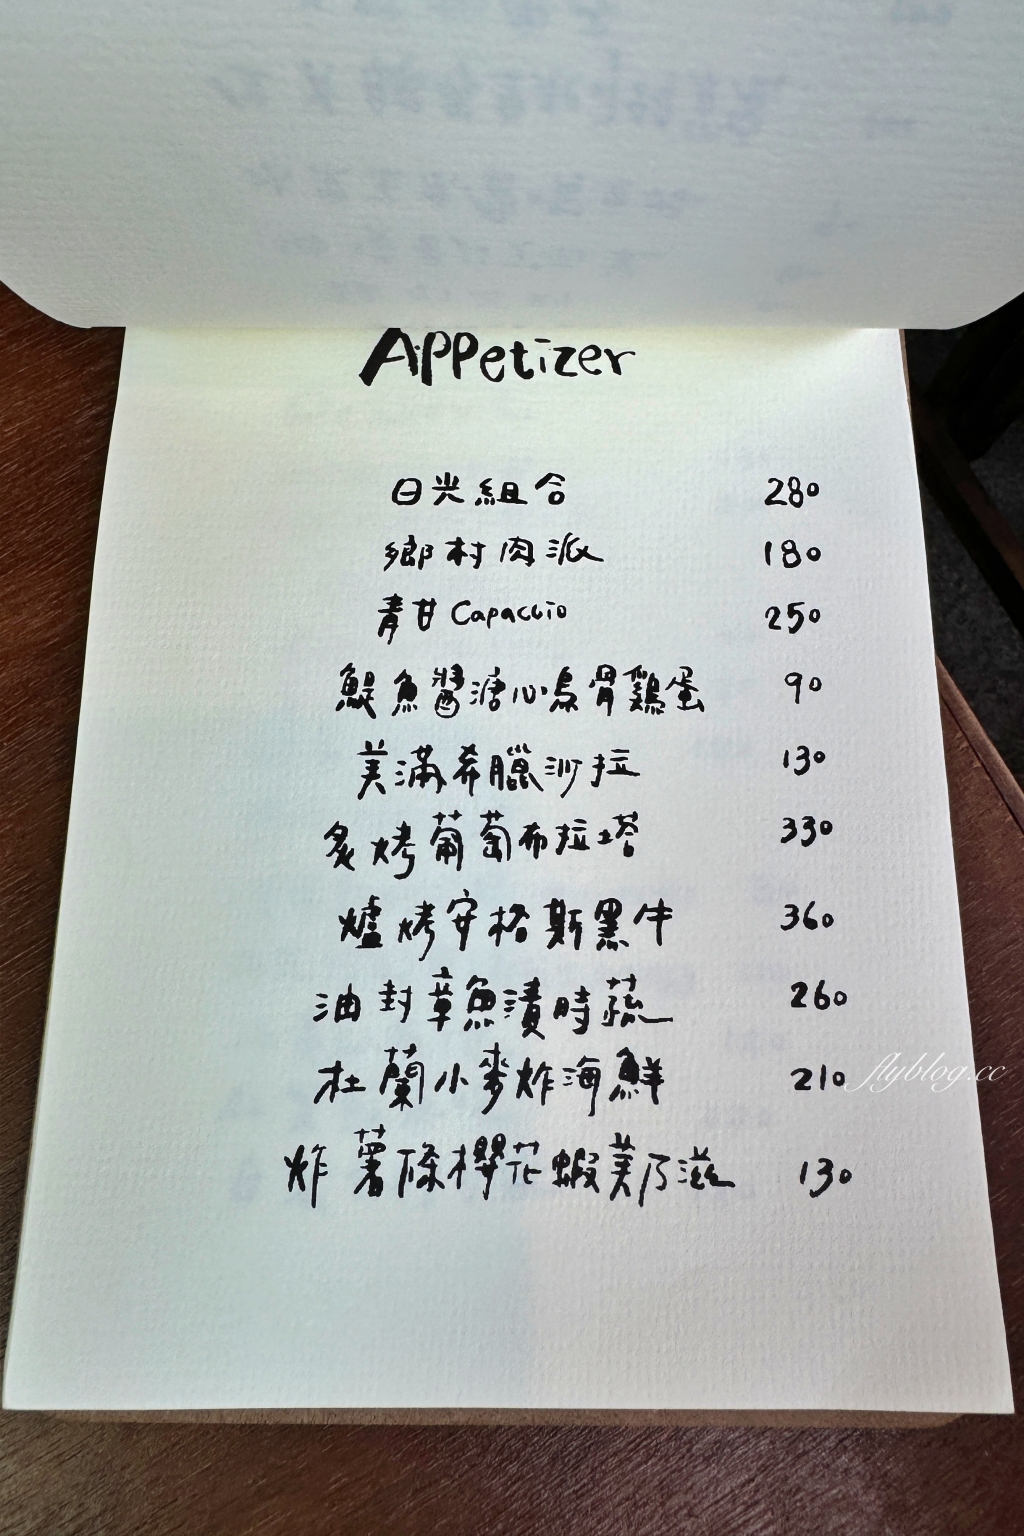 Appetizer
日光組合 280
鄉村肉派 180
青甘 Capaccio 250
鯷魚醬溏心烏骨雞蛋 90
美滿希臘沙拉 130
炙烤葡萄布拉塔 330
爐烤安格斯黑牛 360
油封章魚漬時蔬 260
杜蘭小麥炸海鮮 210
flyblog.cc
炸薯條櫻花蝦美乃滋 130